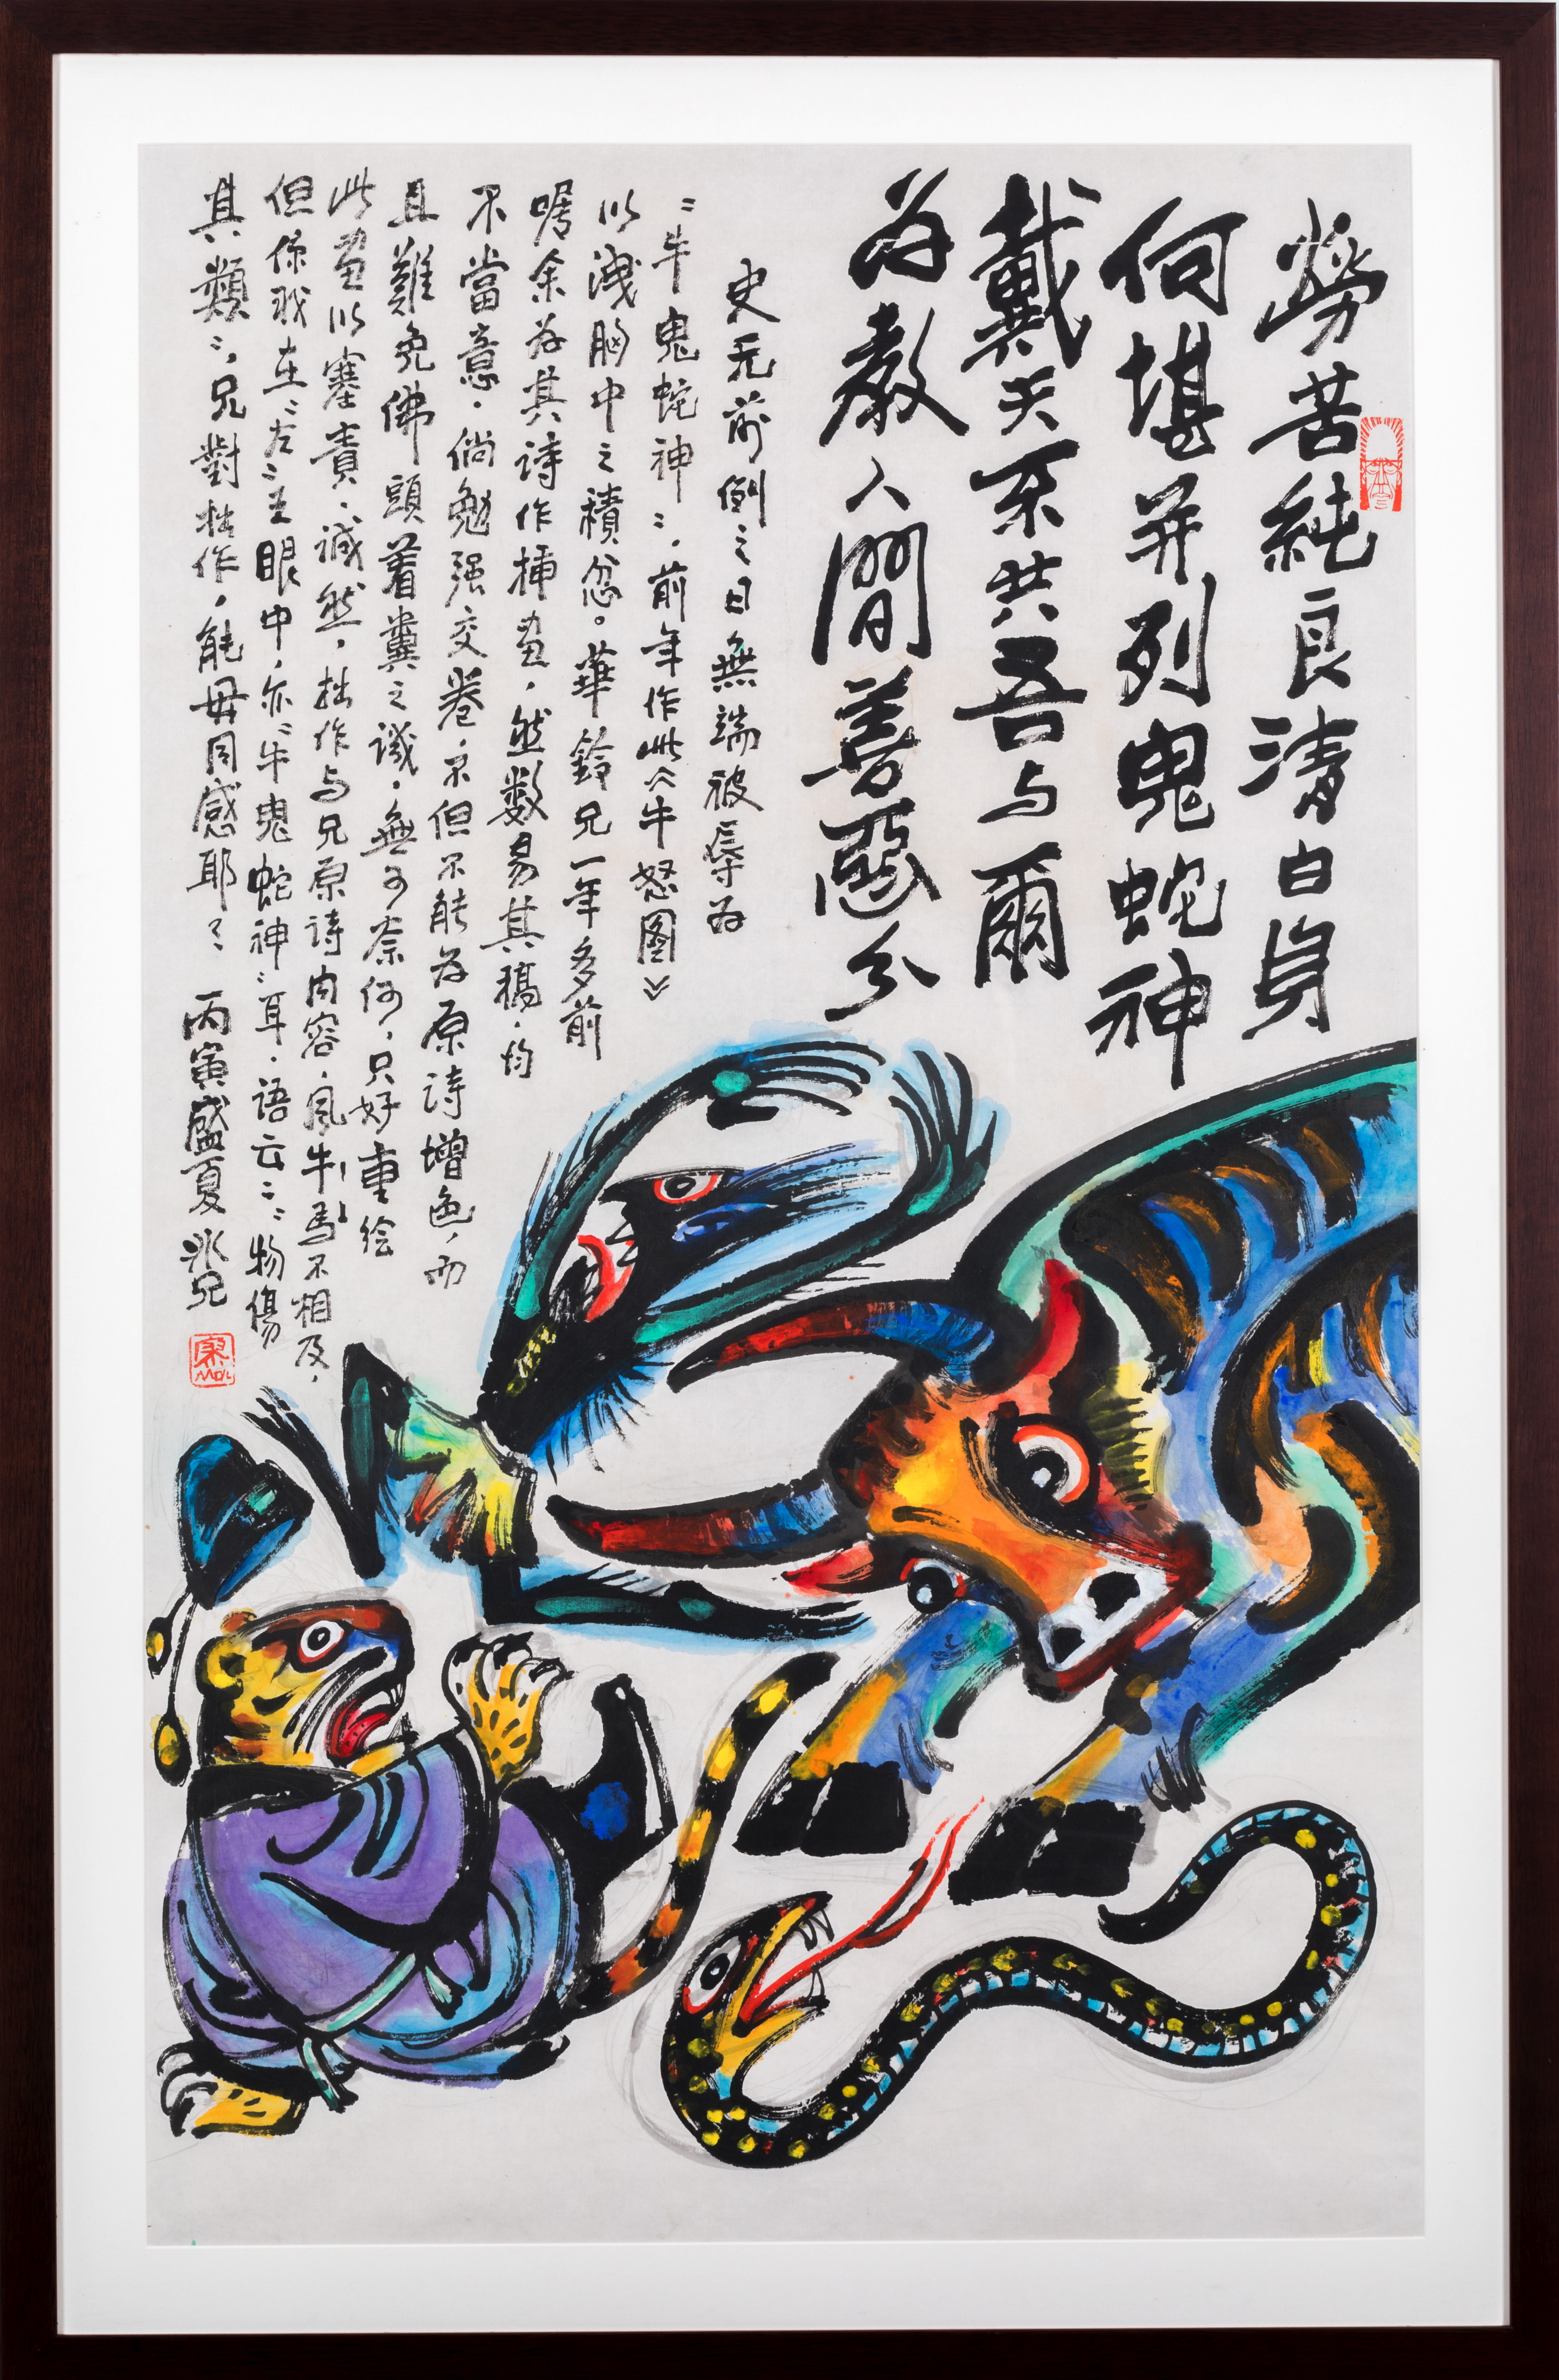 勞苦純良清白身
何堪并列鬼蛇神
戴天不共吾与爾
为教人間善惡分
史无前例之日無端被辱为
"牛鬼蛇神"，前年作此《牛怒图》
以洩胸中之積忿。華鈴兄一年多前
嘱余为其诗作插畫，然数易其稿，均
不當意，倘勉强交卷，不但不能为原诗增色，而
且難免佛頭着糞之譏，無可奈何，只好重绘
此畫以塞責，诚然，拙作与兄原诗内容，風牛馬不相及，
但係我在"左"王眼中，亦"牛鬼蛇神"耳，语云："物傷
其類"，兄對拙作，能毋同感耶？ 丙寅盛夏 冰兄